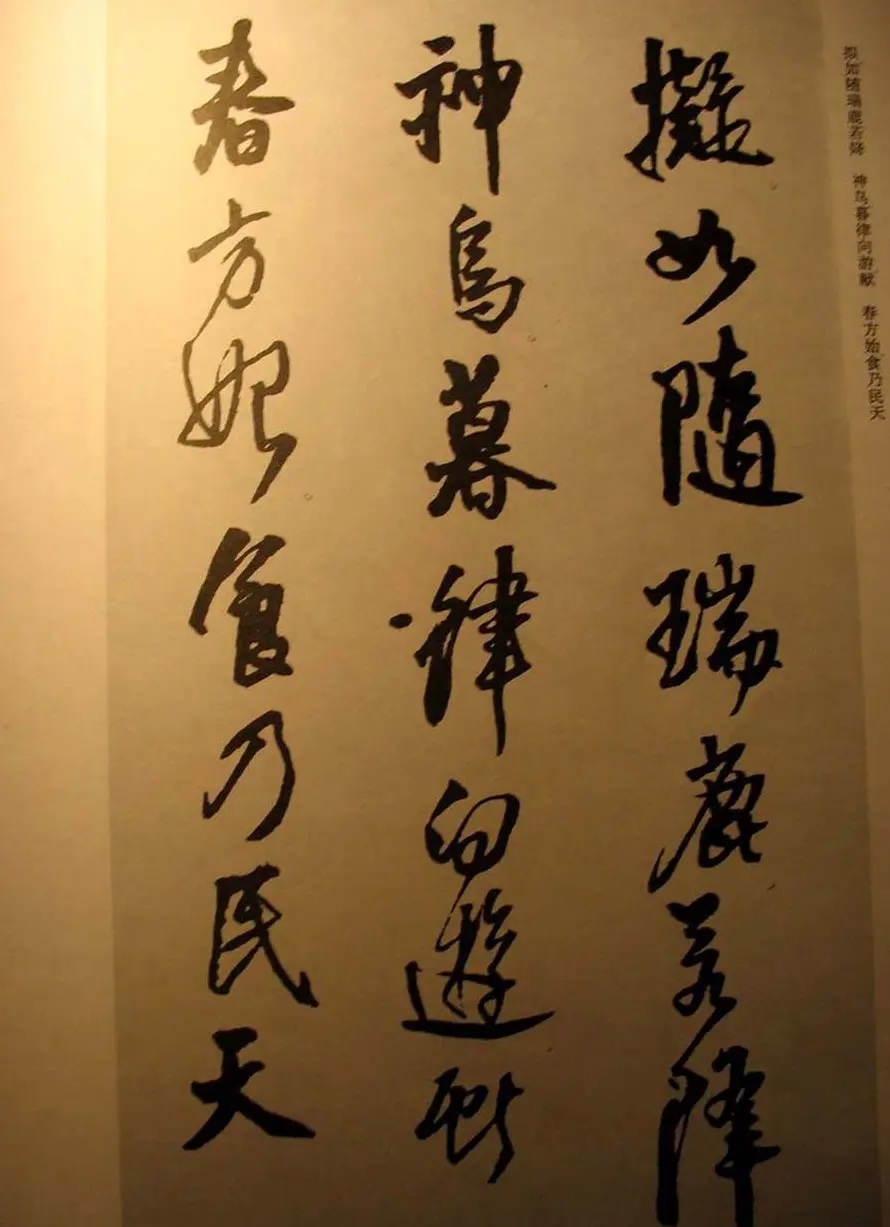 拟如随瑞鹿若降　神鸟暮律向游猷　春方始食乃民天
擬如隨瑞鹿若降
神鳥暮律向遊猷
春方始食乃民天